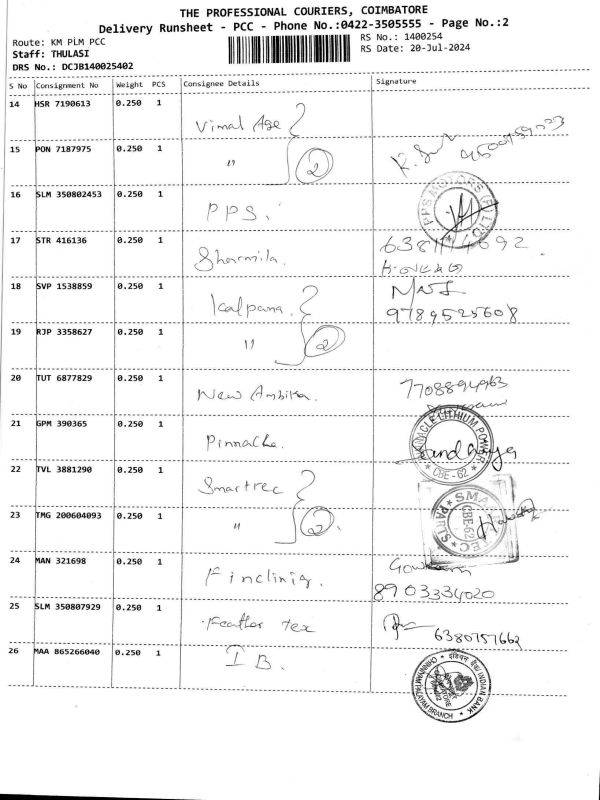 THE PROFESSIONAL COURIERS, COIMBATORE
Delivery Runsheet - PCC - Phone No.:0422-3505555 - Page No.:2
Route: KM PLM PCC
RS No.: 1400254
Staff: THULASI
RS Date: 20-Jul-2024
DRS No.: DCJB140025402
S No Consignment No Weight PCS Consignee Details Signature
14 HSR 7190613 0.250 1 Vimal Age
15 PON 7187975 0.250 1 " 2
16 SLM 350802453 0.250 1 PPS. PPS MOTORS (P) LTD
17 STR 416136 0.250 1 Sharmila. 6381114692
18 SVP 1538859 0.250 1 Kalpana. MANI 9789525608
19 RJP 3358627 0.250 1 " 2
20 TUT 6877829 0.250 1 New Ambika. 7708894963
21 GPM 390365 0.250 1 Pinnacle. PINNACLE LITHIUM POWER CBE-62
22 TVL 3881290 0.250 1 Smartrec
23 TMG 200604093 0.250 1 " 2. CBE-62 PARTS
24 MAN 321698 0.250 1 Finclinig. 8903334020
25 SLM 350807929 0.250 1 Feather tex 6380757662
26 MAA 865266040 0.250 1 IB. इंडियन बैंक/ INDIAN BANK CHINNIAMPALAYAM BRANCH